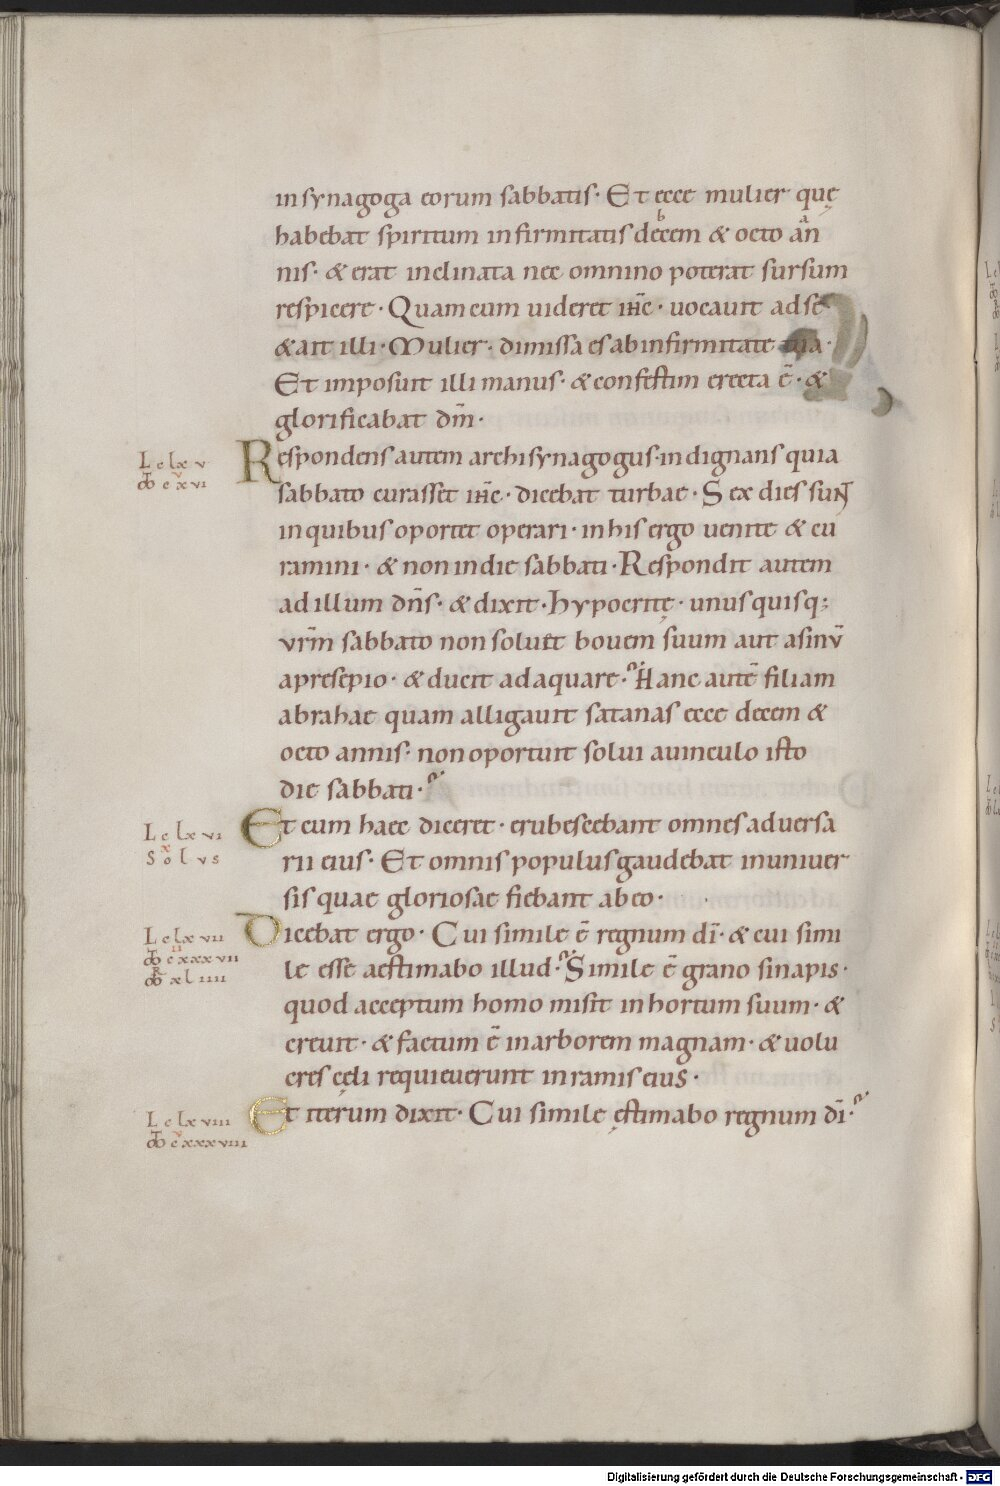 in synagoga eorum sabbatis· Et ecce mulier quę
habebat spiritum infirmitatis decem & octo an
nis· & erat inclinata nec omnino poterat sursum
respicere· Quam cum uideret ih̅c· uocauit ad se
& ait illi· Mulier· dimissa es ab infirmitate tua·
Et imposuit illi manus· & confestim erecta e̅· &
glorificabat dm̅·
L c lx v
Respondens autem archisynagogus· indignans quia
c xvi
sabbato curasset ih̅c· dicebat turbae· Sex dies sunt
in quibus oportet operari· in his ergo uenite & cu
ramini· & non in die sabbati· Respondit autem
ad illum dn̅s· & dixit· hypocritę· unusquisq;
vr̅m sabbato non soluet bouem suum aut asinu̅
a presepio· & ducit adaquare· Hanc aute̅ filiam
abrahae quam alligauit satanas ecce decem &
octo annis· non oportuit solui a uinculo isto
die sabbati·
L c lx vi
Et cum haec diceret· erubescebant omnes aduersa
S o l v s
rii eius· Et omnis populus gaudebat in uniuer
sis quae gloriosae fiebant ab eo·
L c lx vii
Dicebat ergo· Cui simile e̅ regnum di̅· & cui simi
c xxx vii
le esse aestimabo illud· Simile e̅ grano sinapis·
xl iiii
quod acceptum homo misit in hortum suum· &
creuit· & factum e̅ in arborem magnam· & uolu
cres cęli requieuerunt in ramis eius·
L c lx viii
Et iterum dixit· Cui simile ęstimabo regnum di̅·
c xxx viii
Digitalisierung gefördert durch die Deutsche Forschungsgemeinschaft - DFG